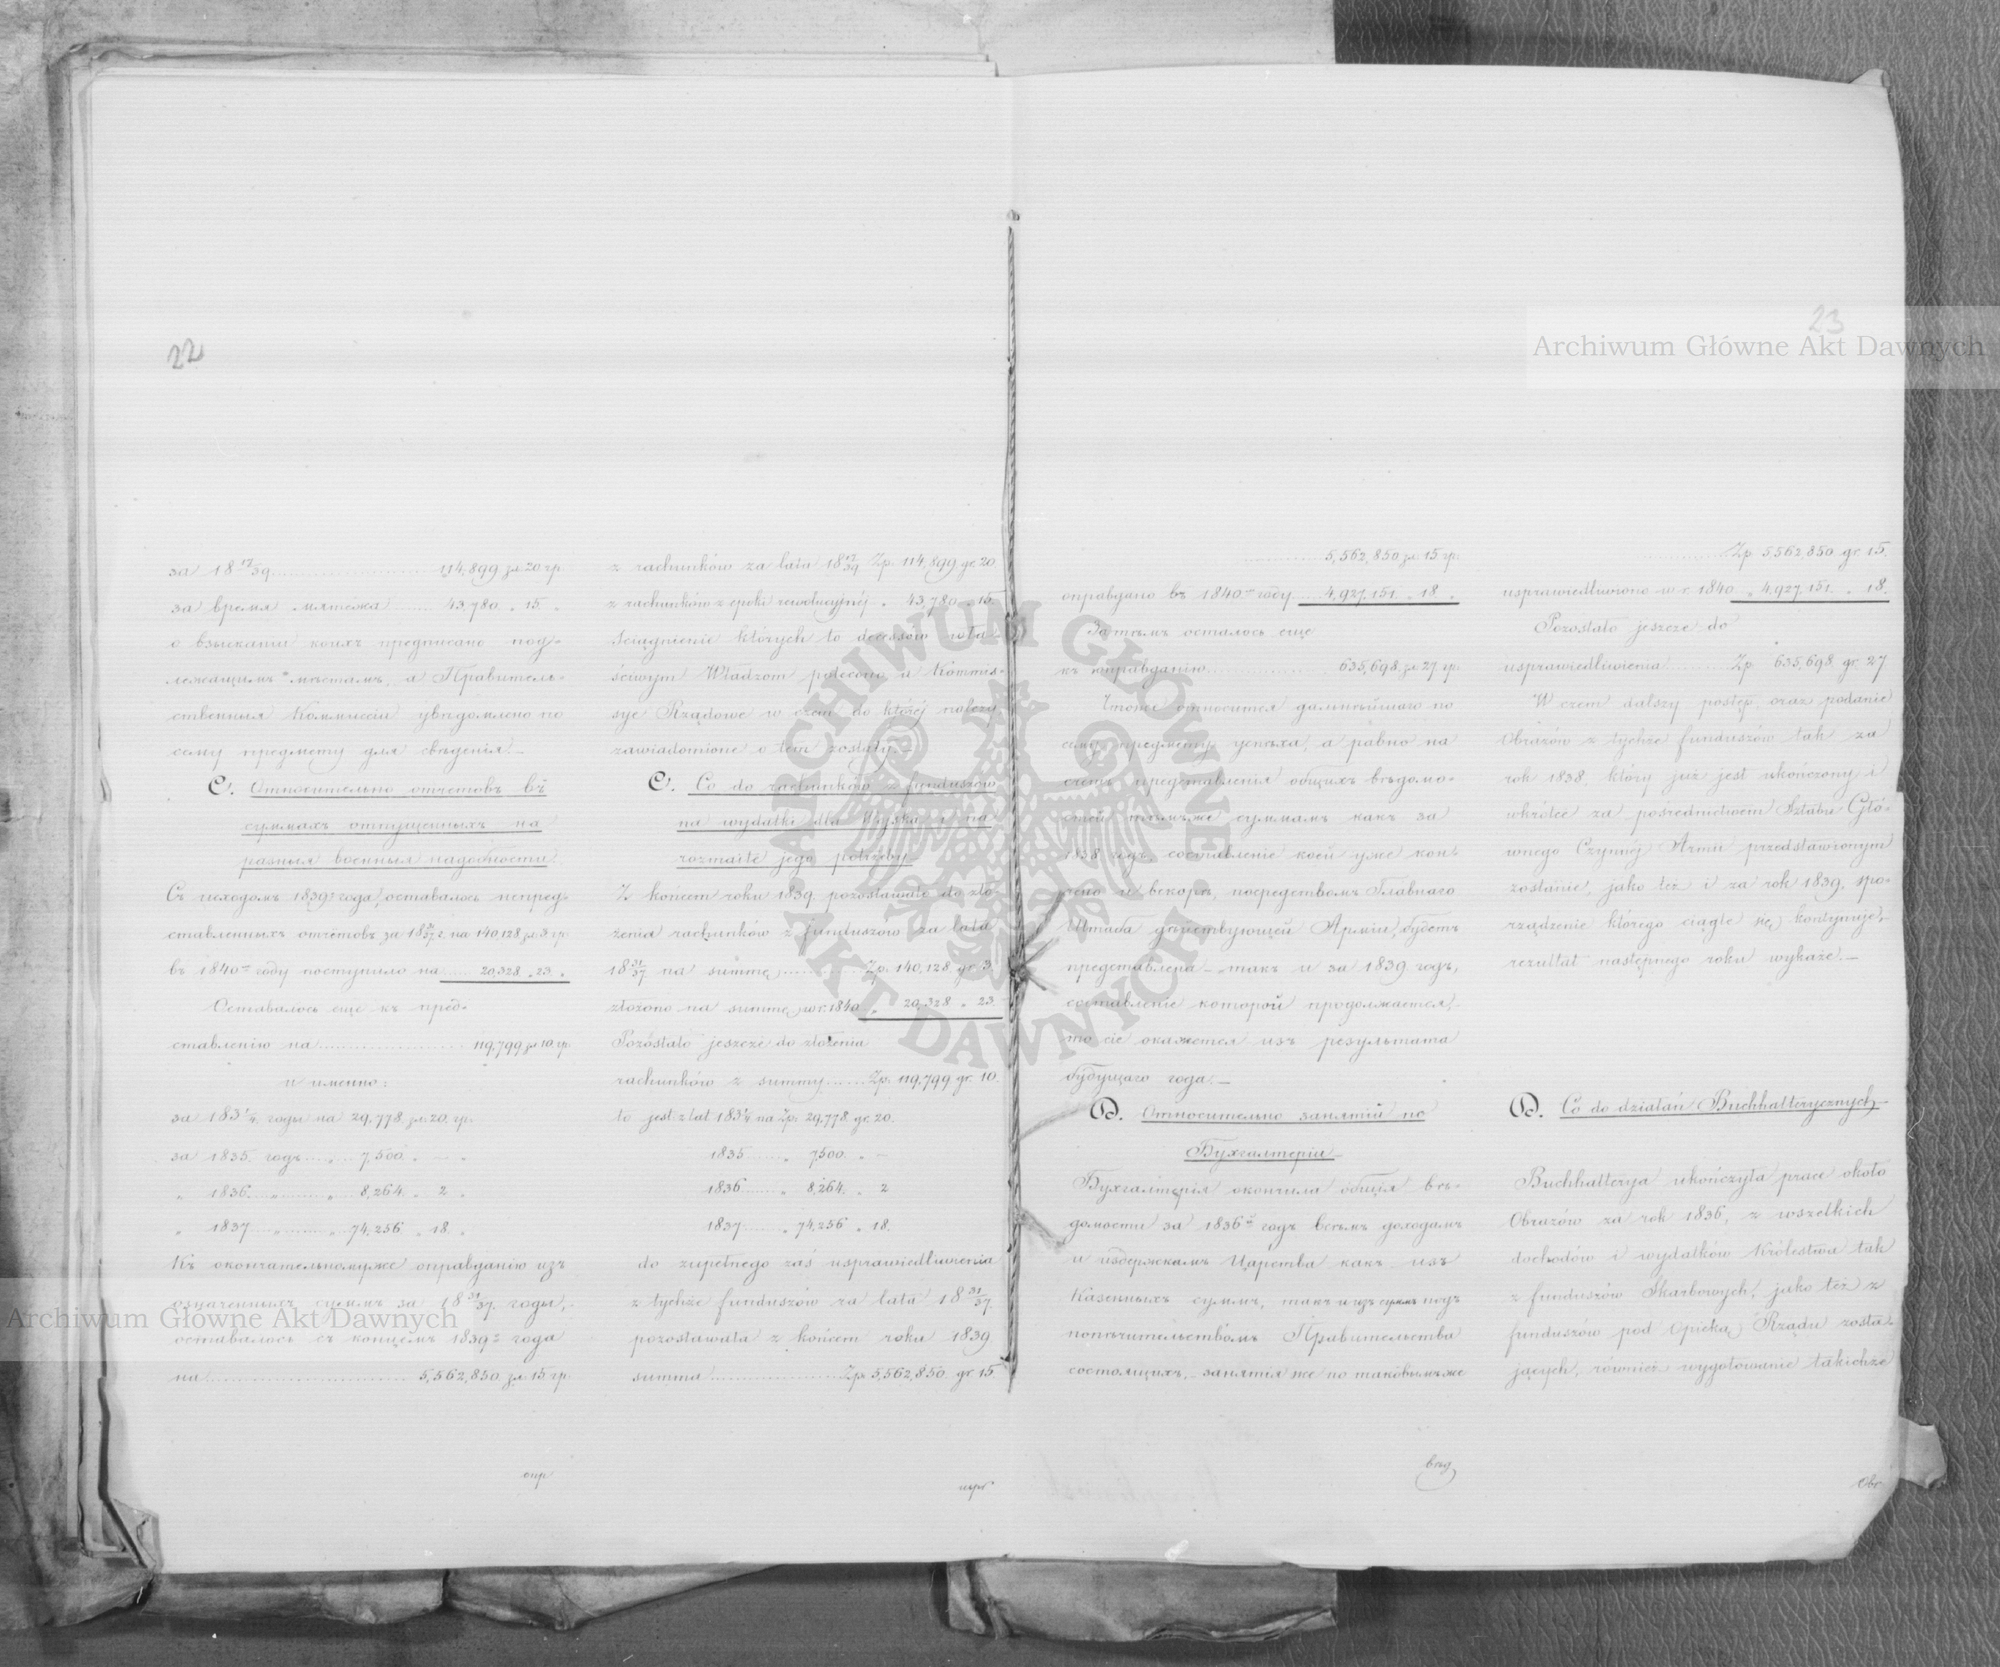 22
за 18 17/39 ........ 114,899 зл. 20 гр.
за время мятежа ...... 43,780 „ 15 „
о взысканіи коихъ предписано под-
лежащимъ мѣстамъ, а Правитель-
ственныя Коммиссіи увѣдомлено по
сему предмету для свѣденія.—
C. Относительно отчетовъ въ
суммахъ отпущенныхъ на
разныя военныя надобности
Съ исходомъ 1839г. года, оставалось непред-
ставленныхъ отчетовъ за 18 31/37 г. на 140,128 зл. 3 гр.
въ 1840м году поступило на ..... 20,328 „ 23 „
Оставалось еще къ пред-
ставленію на ............ 119,799 зл. 10 гр.
и именно:
за 183¼ годы на 29,778 зл. 20 гр.
за 1835. годъ ...... 7,500 „ — „
„ 1836 ...... „ ...... „ 8,264 „ 2 „
„ 1837 ...... „ ...... „ 74,256 „ 18 „
Къ окончательному же оправданію изъ
означенныхъ суммъ за 18 31/37 годы,
оставалось съ концемъ 1839г. года
на ............ 5,562,850 зл. 15 гр.
опр
z rachunków za lata 18 17/39 Zp. 114,899 gr. 20.
z rachunków z epoki rewolucyjnéj „ 43,780 „ 15.
Ściągnienie których to decessów wła-
ściwym Władzom polecono a Kommis-
sye Rządowe w czem do któréj należy
zawiadomione o tem zostały.—
C. Co do rachunków z funduszów
na wydatki dla Wojska i na
rozmaite jego potrzeby.—
Z końcem roku 1839. pozostawało do zło-
żenia rachunków z funduszów za lata
18 31/37 na summę ........ Zp. 140,128 gr. 3.
złożono na summę w r. 1840 „ 20,328 „ 23
Pozostało jeszcze do złożenia
rachunków z summy ...... Zp. 119,799 gr. 10.
to jest z lat 183¼ na Zp. 29,778 gr. 20.
1835 ...... „ 7500 „ —
1836 ...... „ 8,264 „ 2
1837 ...... „ 74,256 „ 18.
do zupełnego zaś usprawiedliwienia
z tychże funduszów za lata 18 31/37
pozostawała z końcem roku 1839
summa ............ Zp. 5,562,850 gr. 15
uspr
23
........ 5,562,850 зл. 15 гр.
оправдано въ 1840м году .... 4,927,151 „ 18 „
Затѣмъ осталось еще
къ оправданію ........ 635,698 зл. 27 гр.
Чтоже относится дальнѣйшаго по
сему предмету успѣха, а равно на
счетъ представленія общихъ вѣдомо-
стей тѣмъ же суммамъ какъ за
1838 годъ составленіе коей уже кон-
чено и вскорѣ, посредствомъ Главнаго
Штаба дѣйствующей Арміи, будетъ
представлена — такъ и за 1839 годъ,
составленіе которой продолжается,
то сіе окажется изъ результата
будущаго года.—
D. Относительно занятій по
Бухгалтеріи —
Бухгалтерія окончила общія вѣ-
домости за 1836й годъ всѣмъ доходамъ
и издержкамъ Царства какъ изъ
Казенныхъ суммъ, такъ и изъ суммъ подъ
попечительствомъ Правительства
состоящихъ, занятія же по таковымъ же
вѣд
........ Zp. 5,562,850 gr. 15.
usprawiedliwiono w r. 1840 „ 4,927,151 „ 18.
Pozostało jeszcze do
usprawiedliwienia ...... Zp. 635,698 gr. 27
W czem dalszy postęp, oraz podanie
Obrazów z tychże funduszów tak za
rok 1838. który już jest ukończony i
wkrótce za pośrednictwem Sztabu Głó-
wnego Czynnéj Armii przedstawionym
zostanie, jako też i za rok 1839. spo-
rządzenie którego ciągle się kontynuje,
rezultat następnego roku wykaże.—
D. Co do działań Buchhalterycznych
Buchhalterya ukończyła prace około
Obrazów za rok 1836, z wszelkich
dochodów i wydatków Królestwa tak
z funduszów Skarbowych, jako też z
funduszów pod opieką Rządu zosta-
jących, również wygotowanie takichże
Obr
Archiwum Główne Akt Dawnych
Archiwum Główne Akt Dawnych
ARCHIWUM GŁÓWNE
AKT DAWNYCH